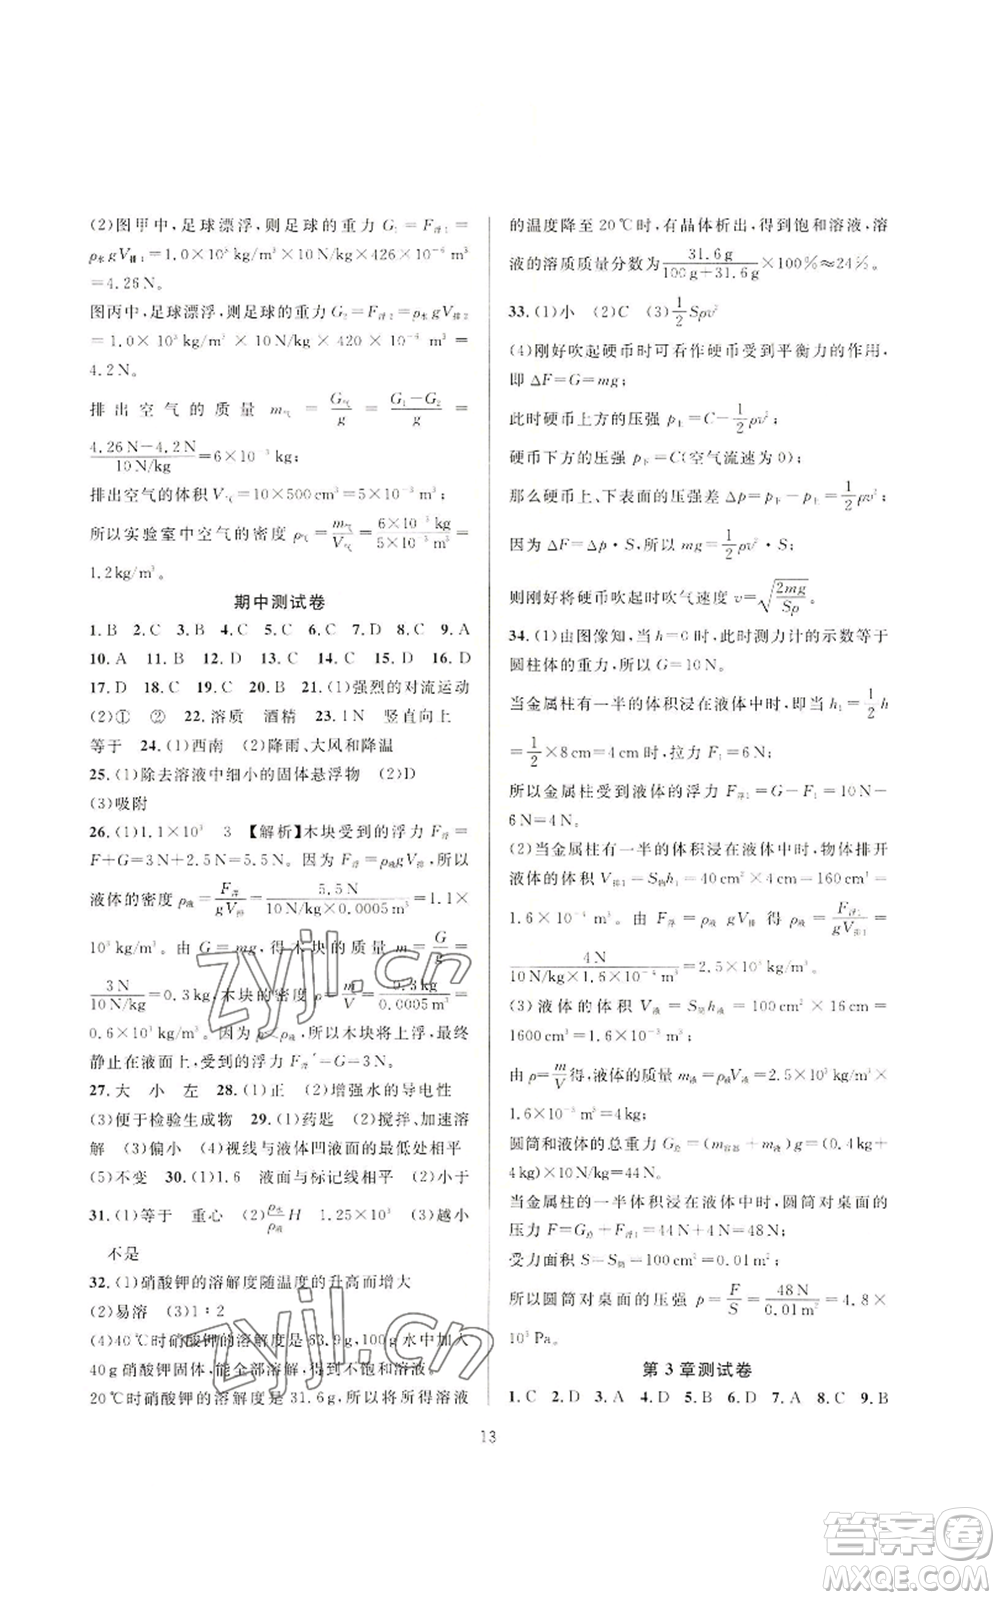 (2)图甲中,足球漂浮,则足球的重力 G₁=F浮₁=
ρ水gV排₁=1.0×10³ kg/m³×10N/kg×426×10⁻⁶ m³
=4.26N。
图丙中,足球漂浮,则足球的重力 G₂=F浮₂=ρ水gV排₂
=1.0×10³ kg/m³×10N/kg×420×10⁻⁶ m³=
4.2N。
排出空气的质量 m气=G气/g=(G₁-G₂)/g=
(4.26N-4.2N)/(10N/kg)=6×10⁻³ kg;
排出空气的体积V气=10×500cm³=5×10⁻³ m³;
所以实验室中空气的密度 ρ气=m气/V气=(6×10⁻³ kg)/(5×10⁻³ m³)=
1.2kg/m³。
期中测试卷
1. B 2. C 3. B 4. C 5. C 6. C 7. D 8. C 9. A
10. A 11. D 12. C 13. B 14. B 15. D 16. D
17. D 18. C 19. C 20. B 21. (1)强烈的对流运动
(2)① ② 22. 溶质 酒精 23. 1N 竖直向上
等于 24. (1)西南 (2)降雨、大风和降温
25. (1)除去溶液中细小的固体悬浮物 (2)D
(3)吸附
26. (1)1.1×10³ 3 【解析】木块受到的浮力 F浮=
F+G=3N+2.5N=5.5N。因为 F浮=ρ液gV排,所以
液体的密度 ρ液=F浮/(gV排)=5.5N/(10N/kg×0.0005m³)=1.1×
10³ kg/m³。由 G=mg,得木块的质量 m=G/g=
3N/(10N/kg)=0.3kg,木块的密度 ρ=m/V=0.3kg/(0.0005m³)=
0.6×10³ kg/m³。因为 ρ<ρ液,所以木块将上浮,最终
静止在液面上,受到的浮力 F浮′=G=3N。
27. 大 小 左 28. (1)正 (2)增强水的导电性
(3)便于检验生成物 29. (1)药匙 (2)搅拌、加速溶
解 (3)偏小 (4)视线与液体凹液面的最低处相平
(5)不变 30. (1)1.6 液面与标记线相平 (2)小于
31. (1)等于 重心 (2)(ρ水/ρ液)H 1.25×10³ (3)越小
不是
32. (1)硝酸钾的溶解度随温度的升高而增大
(2)易溶 (3)1∶2
(4)40℃时硝酸钾的溶解度是63.9g,100g水中加入
40g硝酸钾固体,能全部溶解,得到不饱和溶液。
20℃时硝酸钾的溶解度是31.6g,所以将所得溶液
的温度降至20℃时,有晶体析出,得到饱和溶液,溶
液的溶质质量分数为31.6g/(100g+31.6g)×100%≈24%。
33. (1)小 (2)C (3)½Sρv²
(4)刚好吹起硬币时可看作硬币受到平衡力的作用,
即 ΔF=G=mg;
此时硬币上方的压强 p上=C-½ρv²;
硬币下方的压强 p下=C(空气流速为0);
那么硬币上、下表面的压强差 Δp=p下-p上=½ρv²;
因为 ΔF=Δp·S,所以 mg=½ρv²·S;
则刚好将硬币吹起时吹气速度 v=√(2mg/Sρ)。
34. (1)由图像知,当h=0时,此时测力计的示数等于
圆柱体的重力,所以 G=10N。
当金属柱有一半的体积浸在液体中时,即当 h₁=½h
=½×8cm=4cm时,拉力 F₁=6N;
所以金属柱受到液体的浮力 F浮₁=G-F₁=10N-
6N=4N;
(2)当金属柱有一半的体积浸在液体中时,物体排开
液体的体积 V排₁=S物h₁=40cm²×4cm=160cm³=
1.6×10⁻⁴ m³。由 F浮=ρ液gV排得 ρ液=F浮₁/(gV排₁)=
4N/(10N/kg×1.6×10⁻⁴ m³)=2.5×10³ kg/m³。
(3)液体的体积 V液=S筒h液=100cm²×16cm=
1600cm³=1.6×10⁻³ m³;
由 ρ=m/V得,液体的质量 m液=ρ液V液=2.5×10³ kg/m³×
1.6×10⁻³ m³=4kg;
圆筒和液体的总重力 G总=(m容器+m液)g=(0.4kg+
4kg)×10N/kg=44N;
当金属柱的一半体积浸在液体中时,圆筒对桌面的
压力 F=G总+F浮₁=44N+4N=48N;
受力面积 S=S筒=100cm²=0.01m²;
所以圆筒对桌面的压强 p=F/S=48N/(0.01m²)=4.8×
10³ Pa。
第3章测试卷
1. C 2. D 3. A 4. D 5. B 6. D 7. A 8. C 9. B
13
zyjl.cn
zyjl.cn
答案卷
MXQE.COM